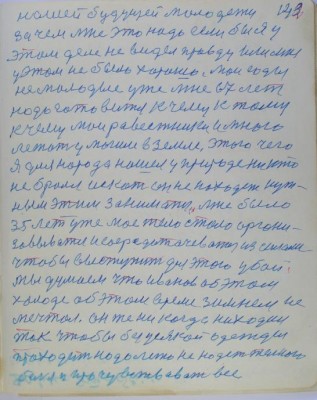 нашей будущей молодежи 142
зачем мне это надо если бы я у
этом деле не видел правду или мне
у этом не было хорошо, мои годы
не молодые уже мне 67 лет
надо готовится к чему к тому
к чему мои равестники и много
лежат у могим в земле, этого чего
я для народа нашел у природе никто
не брался искат он не находит нуж-
ным этим заниматца, мне было
35 лет уже мое тело стало органи-
зовывати и сосредотачеватца из силами
чтобы выступит для этого у бой
мы думаем что иванов об этом
холоде об этом время зимнем не
мечтал. он же никогда находил
так чтобы без всякой одежды
проходит надолго не надет желаного
и прочувствоват все